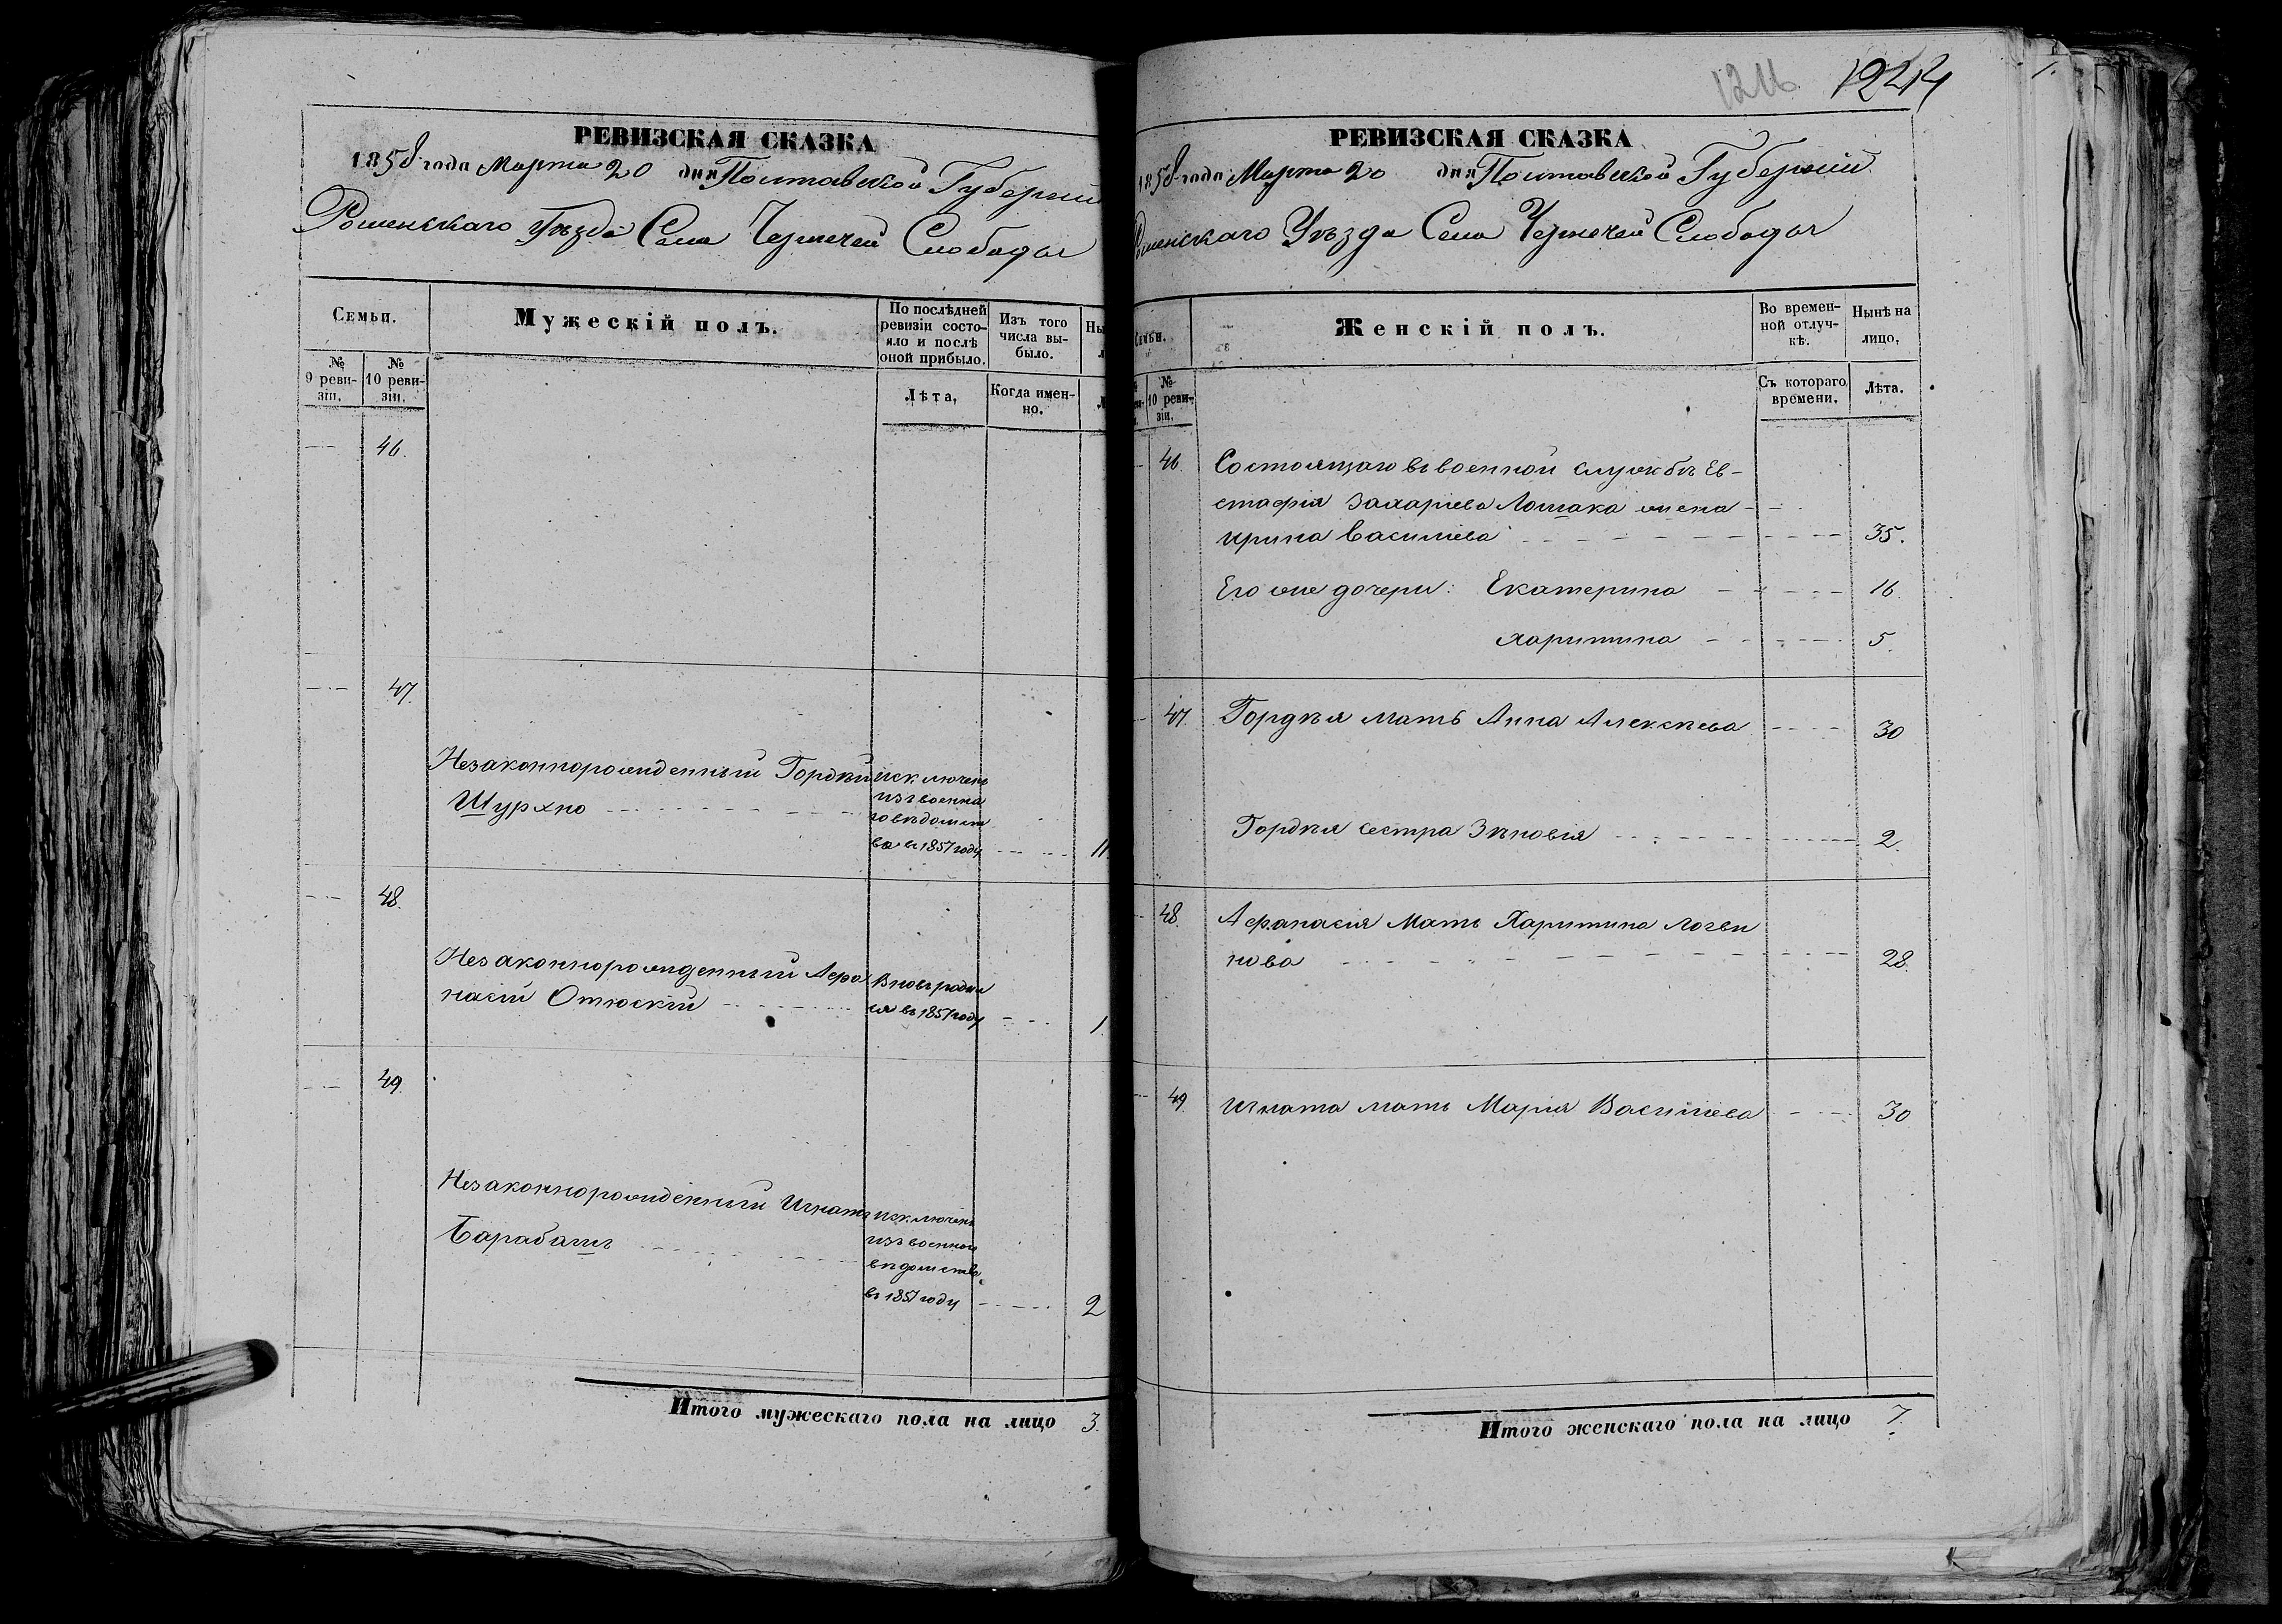 РЕВИЗСКАЯ СКАЗКА
1858 года Марта 20 дня Полтавской Губернии
Роменскаго Уѣзда Села Чернечей Слободы
Семьи.
Мужескій полъ.
По послѣдней ревизіи состояло и послѣ оной прибыло.
Изъ того числа выбыло.
№ 9 ревизіи.
№ 10 ревизіи.
Лѣта,
Когда именно.
46.
47.
Незаконнорожденный Гордѣй
Шурхно
исключенъ
изъ военна
го вѣдомст
ва въ 1857 году
11.
48.
Незаконнорожденный Афа
насій Отюскій
Вновь родил
ся въ 1857 году
1.
49.
Незаконнорожденный Игнатъ
Барабашъ
исключенъ
изъ военнои
вѣдомства
въ 1857 году
2
Итого мужескаго пола на лицо 3.
1224
РЕВИЗСКАЯ СКАЗКА
1858 года Марта 20 дня Полтавской Губерніи
Роменскаго Уѣзда Села Чернечей Слободы
Семьи.
Женскій полъ.
Во временной отлучкѣ.
Нынѣ на лицо,
№ 10 ревизіи.
Съ котораго времени,
Лѣта.
46. Состоящаго въ военной службѣ Ев-
стафія Захаріева Лошака жена
Ирина Васильева 35.
Его же дочери: Екатерина 16.
Харитина 5.
47. Гордѣя мать Анна Алексѣева 30
Гордѣя сестра Зѣновія 2.
48. Афанасія Мать Харитина Логви
нова 28.
49. Игната мать Марія Васильева 30
Итого женскаго пола на лицо 7.